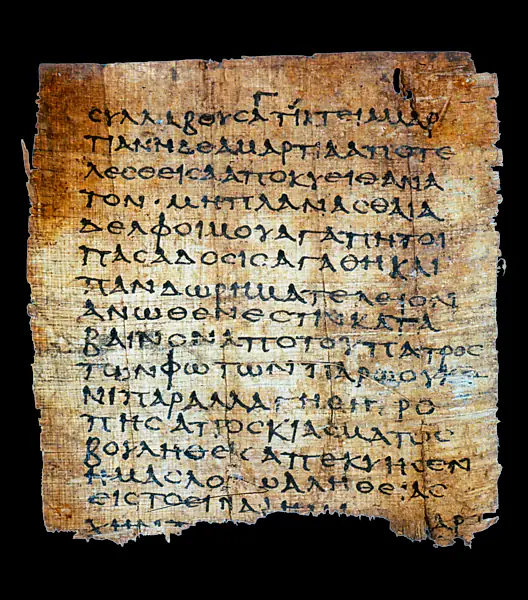 Γ
ϹΥΛΛΑΒΟΥϹΑΤΙΚΤΕΙΑΜΑΡ
ΤΙΑΝΗΔΕΑΜΑΡΤΙΑΑΠΟΤΕ
ΛΕϹΘΕΙϹΑΑΠΟΚΥΕΙΘΑΝΑ
ΤΟΝ·ΜΗΠΛΑΝΑϹΘΑΙΑ
ΔΕΛΦΟΙΜΟΥΑΓΑΠΗΤΟΙ
ΠΑϹΑΔΟϹΙϹΑΓΑΘΗΚΑΙ
ΠΑΝΔΩΡΗΜΑΤΕΛΕΙΟΝ
ΑΝΩΘΕΝΕϹΤΙΝΚΑΤΑ
ΒΑΙΝΟΝΑΠΟΤΟΥΠΑΤΡΟϹ
ΤΩΝΦΩΤΩΝΠΑΡΩΟΥΚΕ
ΝΙΠΑΡΑΛΛΑΓΗΗΤΡΟ
ΠΗϹΑΠΟϹΚΙΑϹΜΑΤΟϹ
ΒΟΥΛΗΘΕΙϹΑΠΕΚΥΗϹΕΝ
ΗΜΑϹΛΟΓΩΑΛΗΘΕΙΑϹ
ΕΙϹΤΟΕΙΝΑΙ